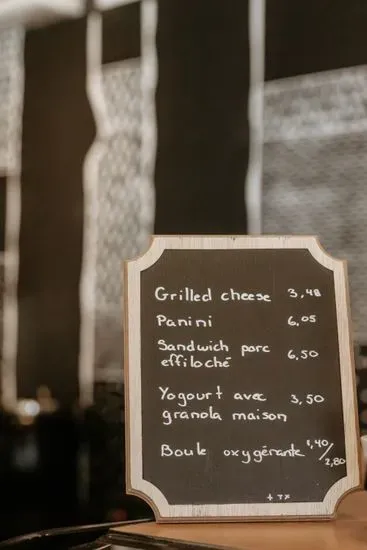 Grilled cheese 3,48
Panini 6,05
Sandwich porc
effiloché 6,50
Yogourt avec 3,50
granola maison
Boule oxygérante 1,40/2,80
+ TX